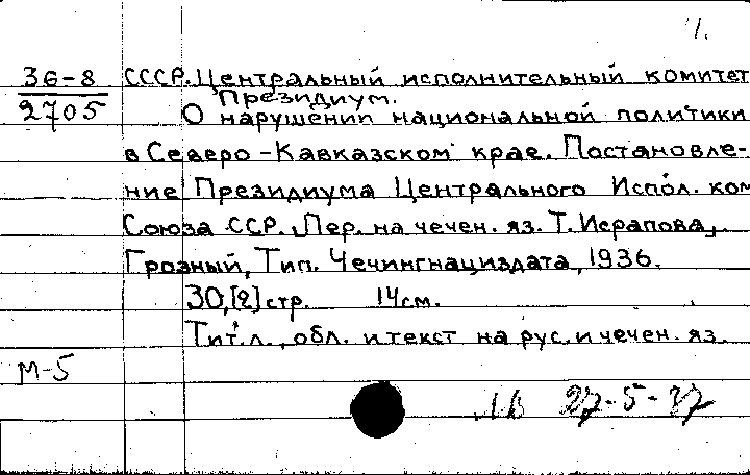 36-8 СССР. Центральный исполнительный комитет
2705 Президиум.
О нарушении национальной политики
в Северо-Кавказском крае. Постановле-
ние Президиума Центрального Испол. ком
Союза ССР. Пер. на чечен. яз. Т. Исрапова,
Грозный, Тип. Чечингнациздата, 1936.
30,[2] стр. 14 см.
Тит. л., обл. и текст на рус. и чечен. яз.
М-5
27-5-37